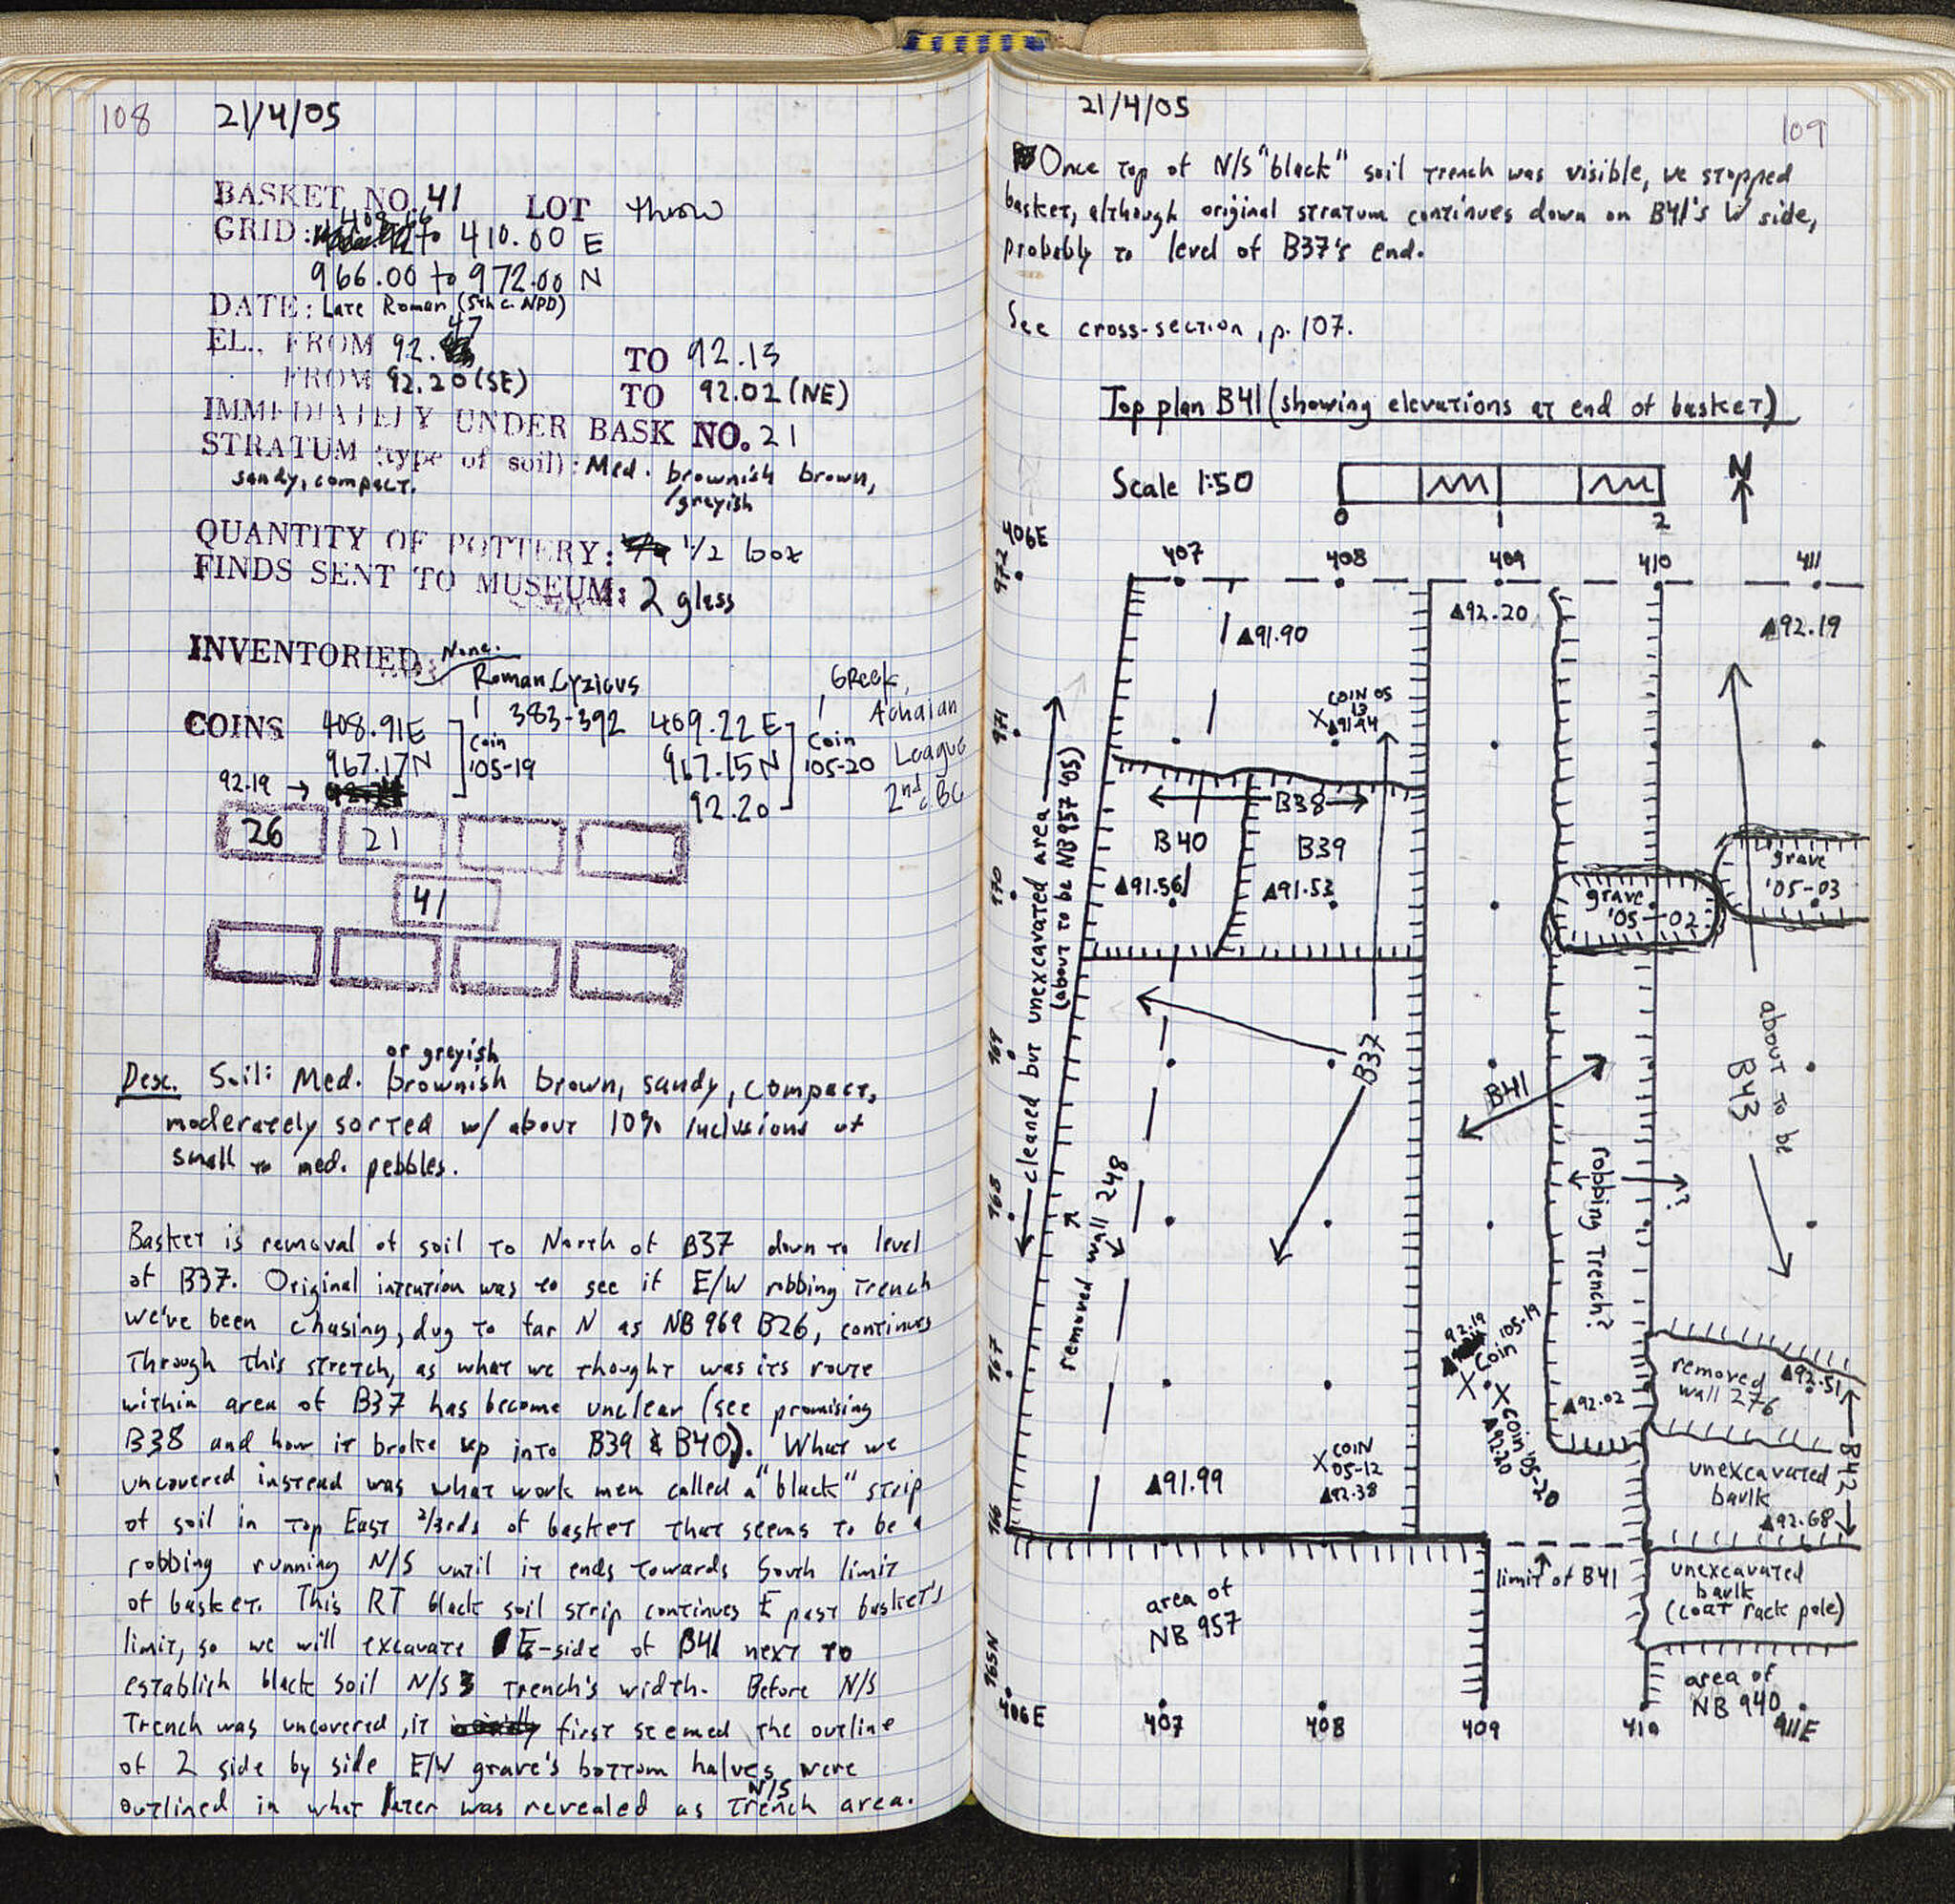 108
21/4/05
BASKET NO. 41 LOT throw
GRID: 408.66 to 410.00 E
966.00 to 972.00 N
DATE: Late Roman (5th c. NPD)
EL., FROM 92.47 TO 92.13
FROM 92.20 (SE) TO 92.02 (NE)
IMMEDIATELY UNDER BASK NO. 21
STRATUM (type of soil): Med. brownish brown,
/greyish
sandy, compact.
QUANTITY OF POTTERY: 1/2 box
FINDS SENT TO MUSEUM: 2 glass
INVENTORIED: None.
Roman, Cyzicus
383-392
Greek,
Achaian
League
2nd c. BC
COINS 408.91E
967.17N
92.19 →
Coin
'05-19
409.22 E
967.15N
92.20
Coin
'05-20
26 21
41
or greyish
Desc. Soil: Med. brownish brown, sandy, compact,
moderately sorted w/ about 10% inclusions of
small to med. pebbles.
Basket is removal of soil to North of B37 down to level
of B37. Original intention was to see if E/W robbing trench
we've been chasing, dug to far N as NB 969 B26, continues
through this stretch, as what we thought was its route
within area of B37 has become unclear (see promising
B38 and how it broke up into B39 & B40). What we
uncovered instead was what work men called a "black" strip
of soil in top East 2/3rds of basket that seems to be a
robbing running N/S until it ends towards South limit
of basket. This RT black soil strip continues E past basket's
limit, so we will excavate E-side of B41 next to
establish black soil N/S trench's width. Before N/S
trench was uncovered, it first seemed the outline
of 2 side by side E/W grave's bottom halves were
N/S
outlined in what later was revealed as trench area.
21/4/05
109
Once top of N/S "black" soil trench was visible, we stopped
basket, although original stratum continues down on B41's W side,
probably to level of B37's end.
See cross-section, p. 107.
Top plan B41 (showing elevations at end of basket)
Scale 1:50
0 1 2
N
406E 407 408 409 410 411
972
971
970
969
968
967
966
965N
▲91.90
▲92.20
▲92.19
COIN 05
13
X ▲91.94
B38
B40
B39
▲91.56
▲91.53
grave
'05-02
grave
'05-03
cleaned but unexcavated area
(about to be NB 957 '05)
B37
B41
about to be
B43
removed wall 248
robbing trench?
?
92.19
Coin '05-19
X X
Coin '05-20
▲92.20
▲92.02
removed
wall 276
▲92.51
unexcavated
baulk
▲92.68
B42
▲91.99
X COIN
05-12
▲92.38
area of
NB 957
limit of B41
unexcavated
baulk
(coat rack pole)
area of
NB 940
406E 407 408 409 410 411E